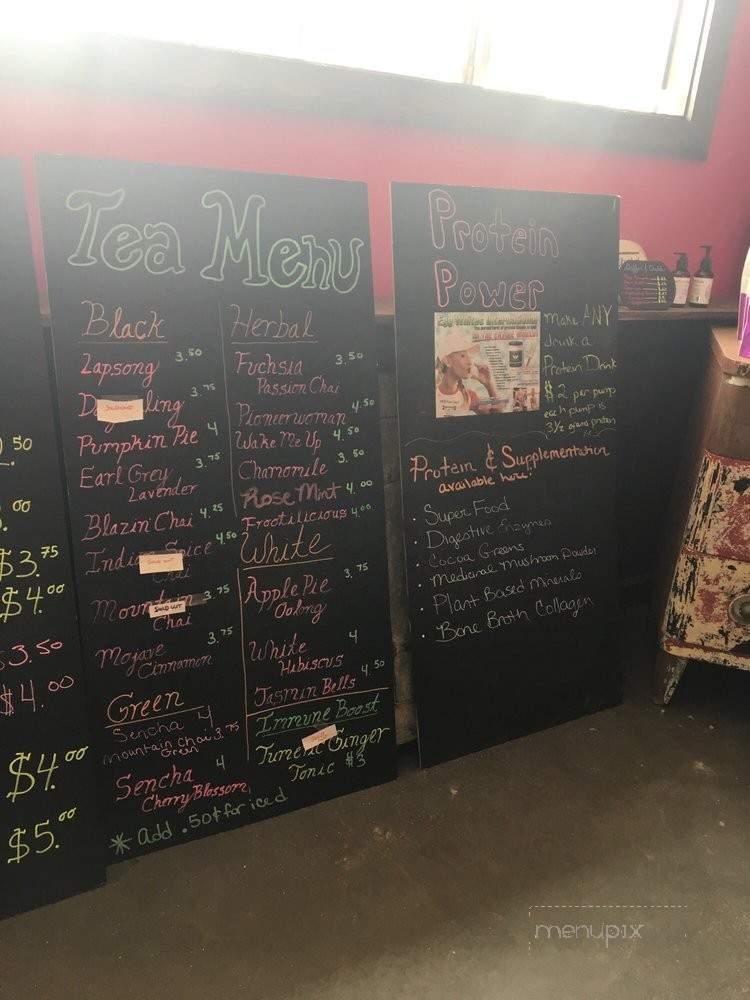 .50
.00
$3.75
$4.00
$3.50
$4.00
$4.00
$5.00
Tea Menu
Black
Lapsong 3.50
D ling 3.75
Pumpkin Pie 4
Earl Grey 3.75
Lavender
Blazin' Chai 4.25
India Spice 4.50
Chai
Mountain 3.75
Sold out
Chai
Mojave 3.75
Cinnamon
Green
Sencha 4
Mountain Chai 3.75
Green
Sencha 4
Cherry Blossom
* Add .50¢ for iced
Herbal
Fuchsia 3.50
Passion Chai
Pioneerwoman 4.50
Wake Me Up 4.50
Chamomile 3.50
Rose Mint 4.00
Frootilicious 4.00
White
Apple Pie 3.75
Oolong
White 4
Hibiscus
Jasmin Bells 4.50
Immune Boost
Tumeric Ginger
Tonic $3
Protein
Power
Egg Whites International
Make ANY
drink a
Protein Drink
$2 per pump
each pump is
3½ grams protein
Protein & Supplementation
available here:
· Super Food
· Digestive Enzymes
· Cocoa Greens
· Medicinal Mushroom Powder
· Plant Based Minerals
· Bone Broth Collagen
menupix